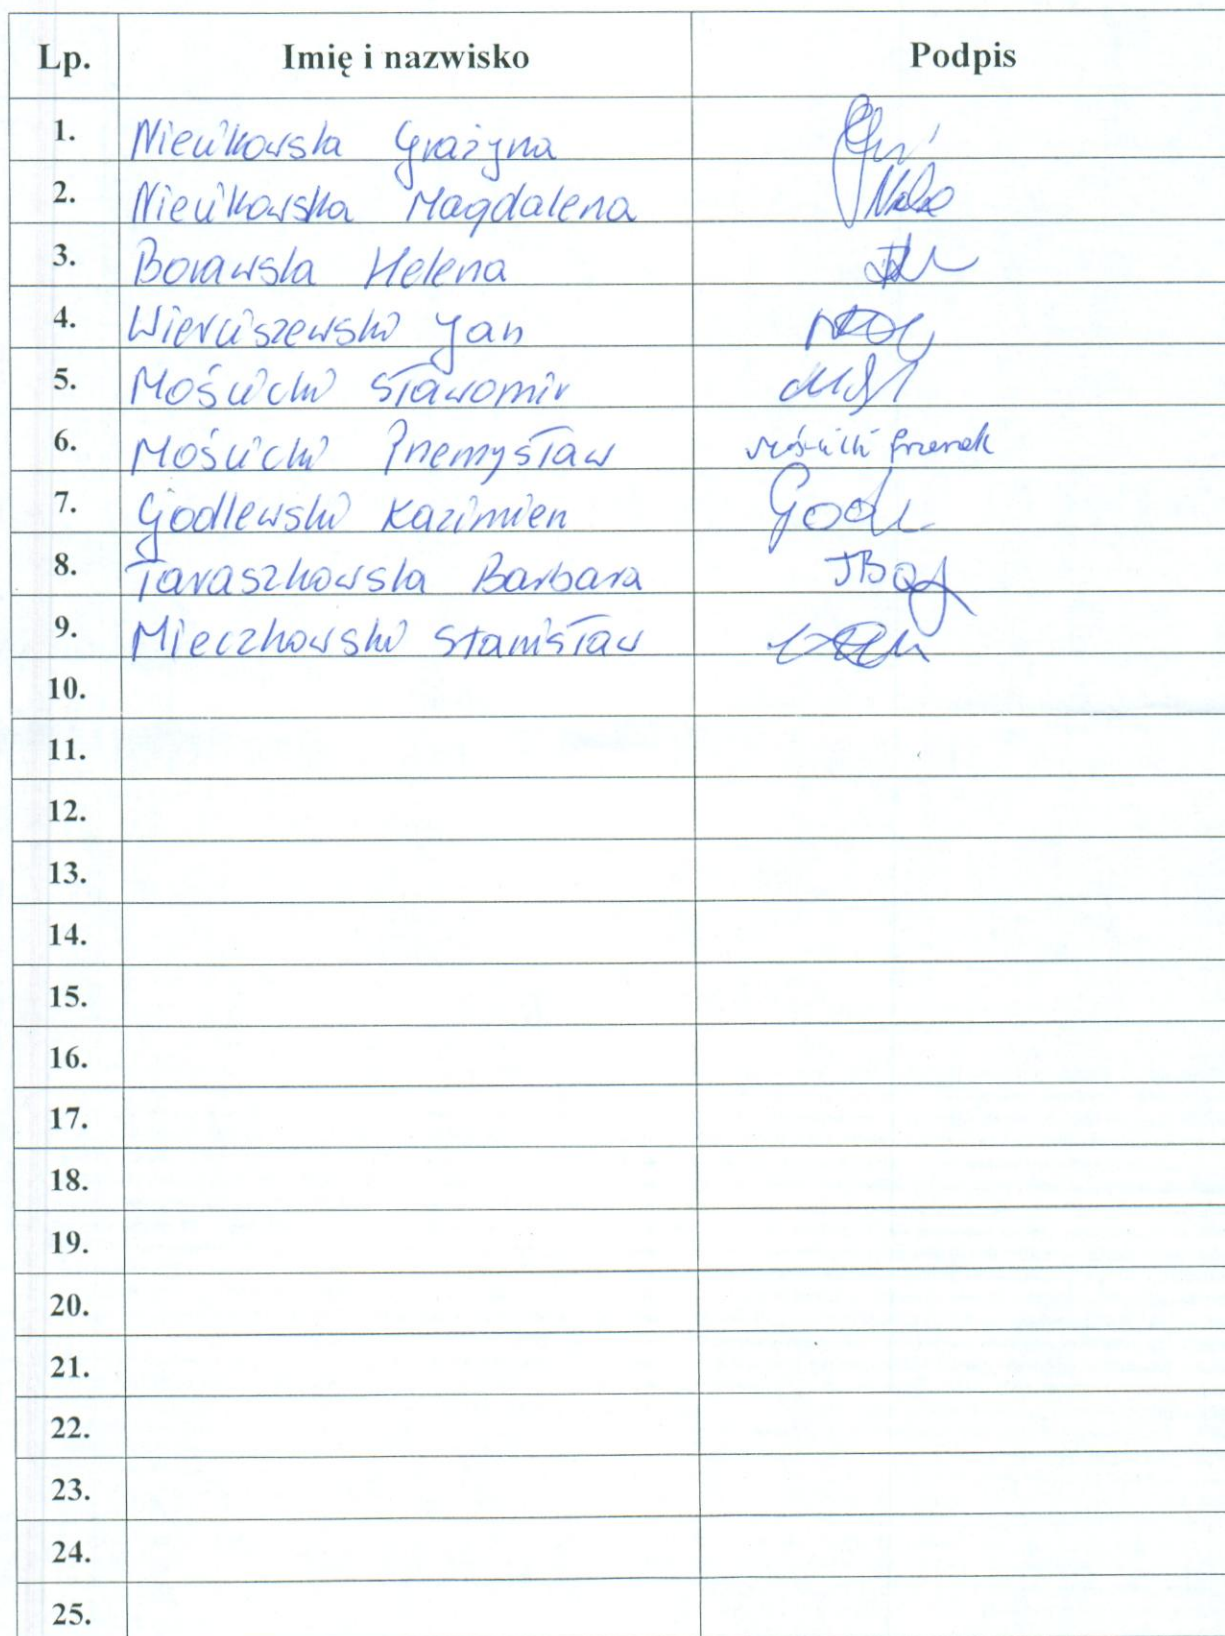 Lp. Imię i nazwisko Podpis
1. Niecikowska Grażyna
2. Niecikowska Magdalena
3. Borawska Helena
4. Wierciszewski Jan
5. Mościcki Sławomir
6. Mościcki Przemysław Mościcki Przemek
7. Godlewski Kazimierz Godl
8. Taraszkowska Barbara
9. Mieczkowski Stanisław
10.
11.
12.
13.
14.
15.
16.
17.
18.
19.
20.
21.
22.
23.
24.
25.